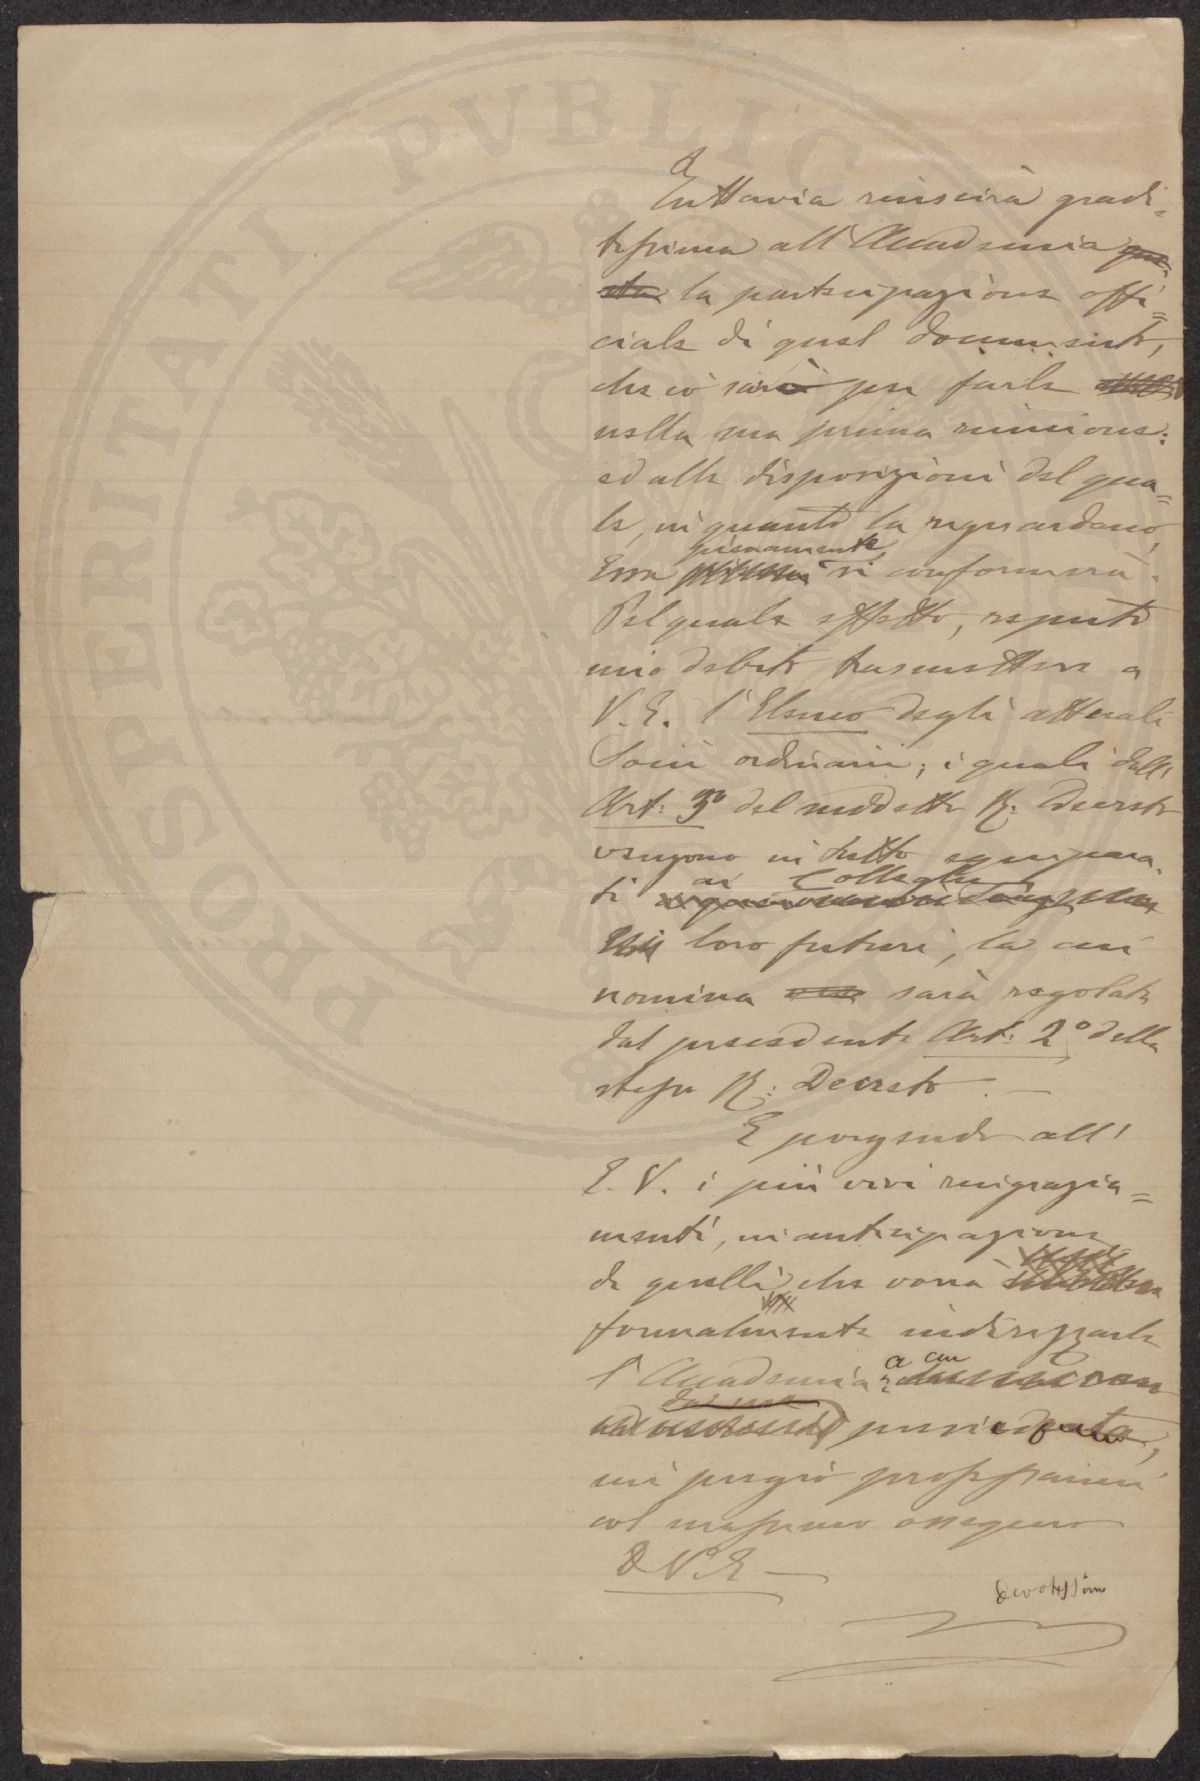 Tuttavia riuscirà gradi=
tissima all'Accademia que
sta la partecipazione offi=
ciale di quel documento,
che io sarò per farle
nella sua prima riunione:
ed alle disposizioni del qua=
le, in quanto la riguardano,
pienamente
Essa si conformerà.
Pel quale effetto, reputo
mio debito trasmettere a
V. E. l'Elenco degli attuali
Socii ordinarii; i quali dall'
Art: 3º del suddetto R: Decreto
vengono in tutto equipara
ai Colleghi
ti
loro futuri, la cui
nomina sarà regolata
dal precedente Art: 2º della
stesso R: Decreto. —
E porgendo all'
E. V. i più vivi ringrazia=
menti, in anticipazione
di quelli che vorrà
formalmente indirizzarle
l'Accademia a cui
presiedo,
mi pregio professarmi
col massimo ossequio
D. V. E. —
Devotissimo
PROSPERITATI PVBLICAE